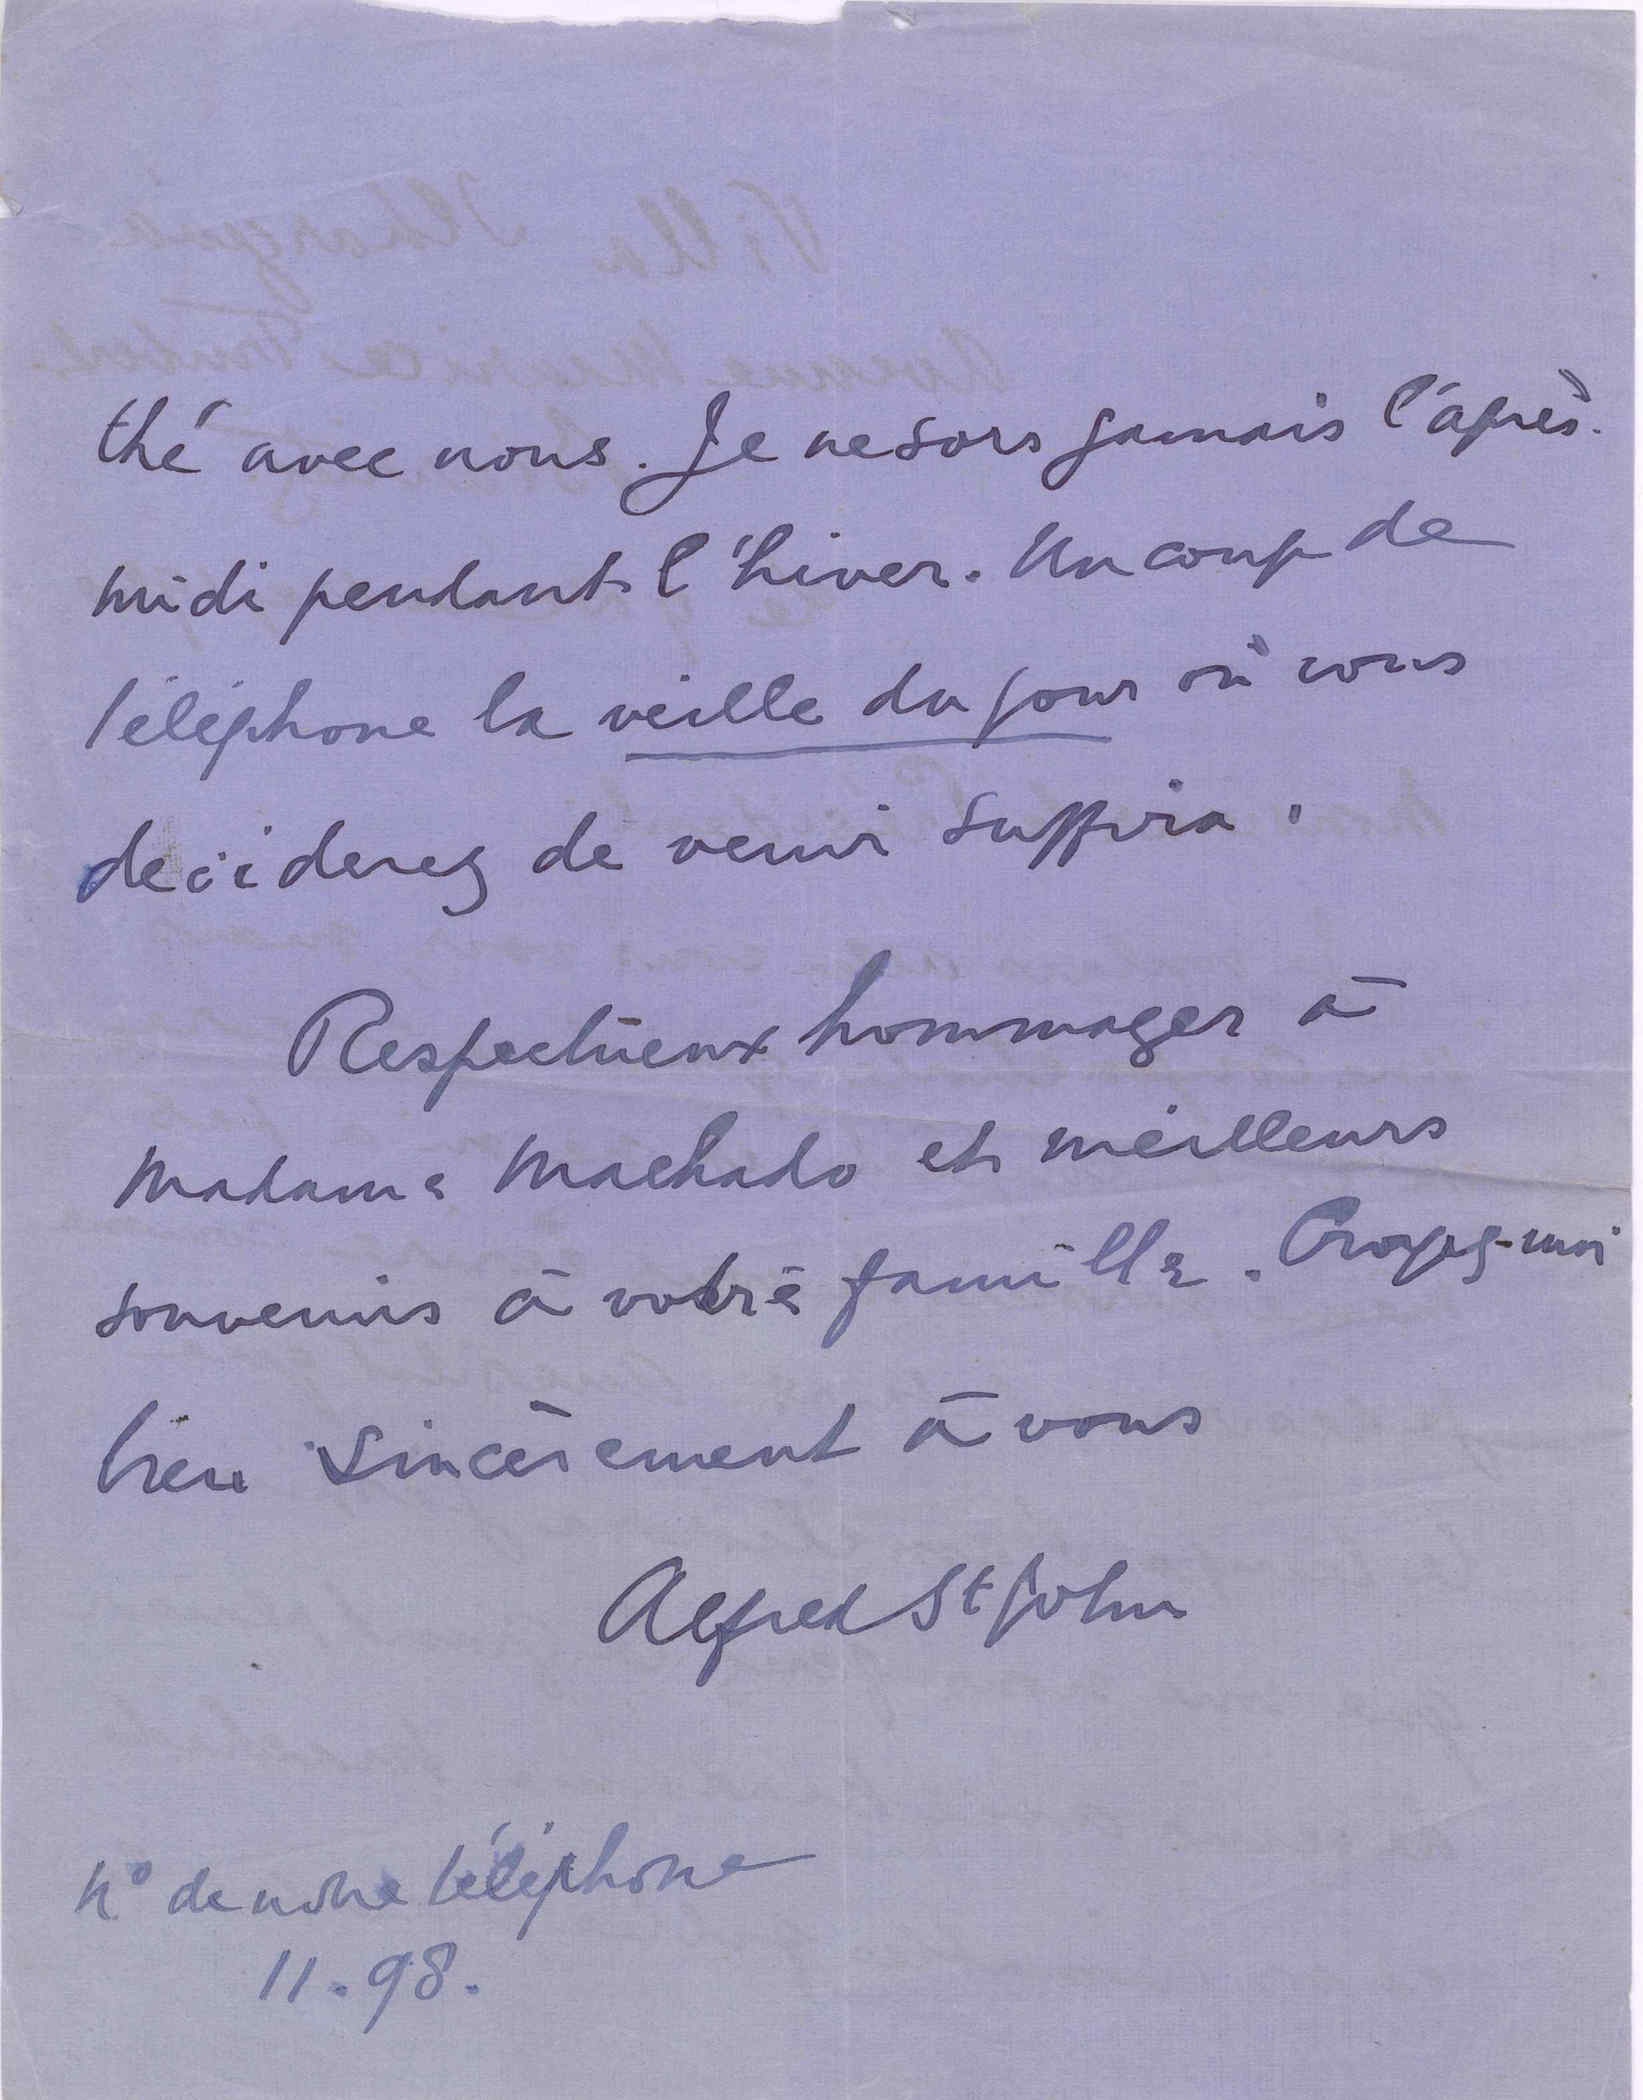 thé avec nous. Je ne sors jamais l'après-
midi pendant l'hiver. Un coup de
téléphone la veille du jour où vous
déciderez de venir suffira.
Respectueux hommages à
Madame Machado et meilleurs
souvenirs à votre famille. Croyez-moi
bien sincèrement à vous
Alfred St John
N° de notre téléphone
11.98.